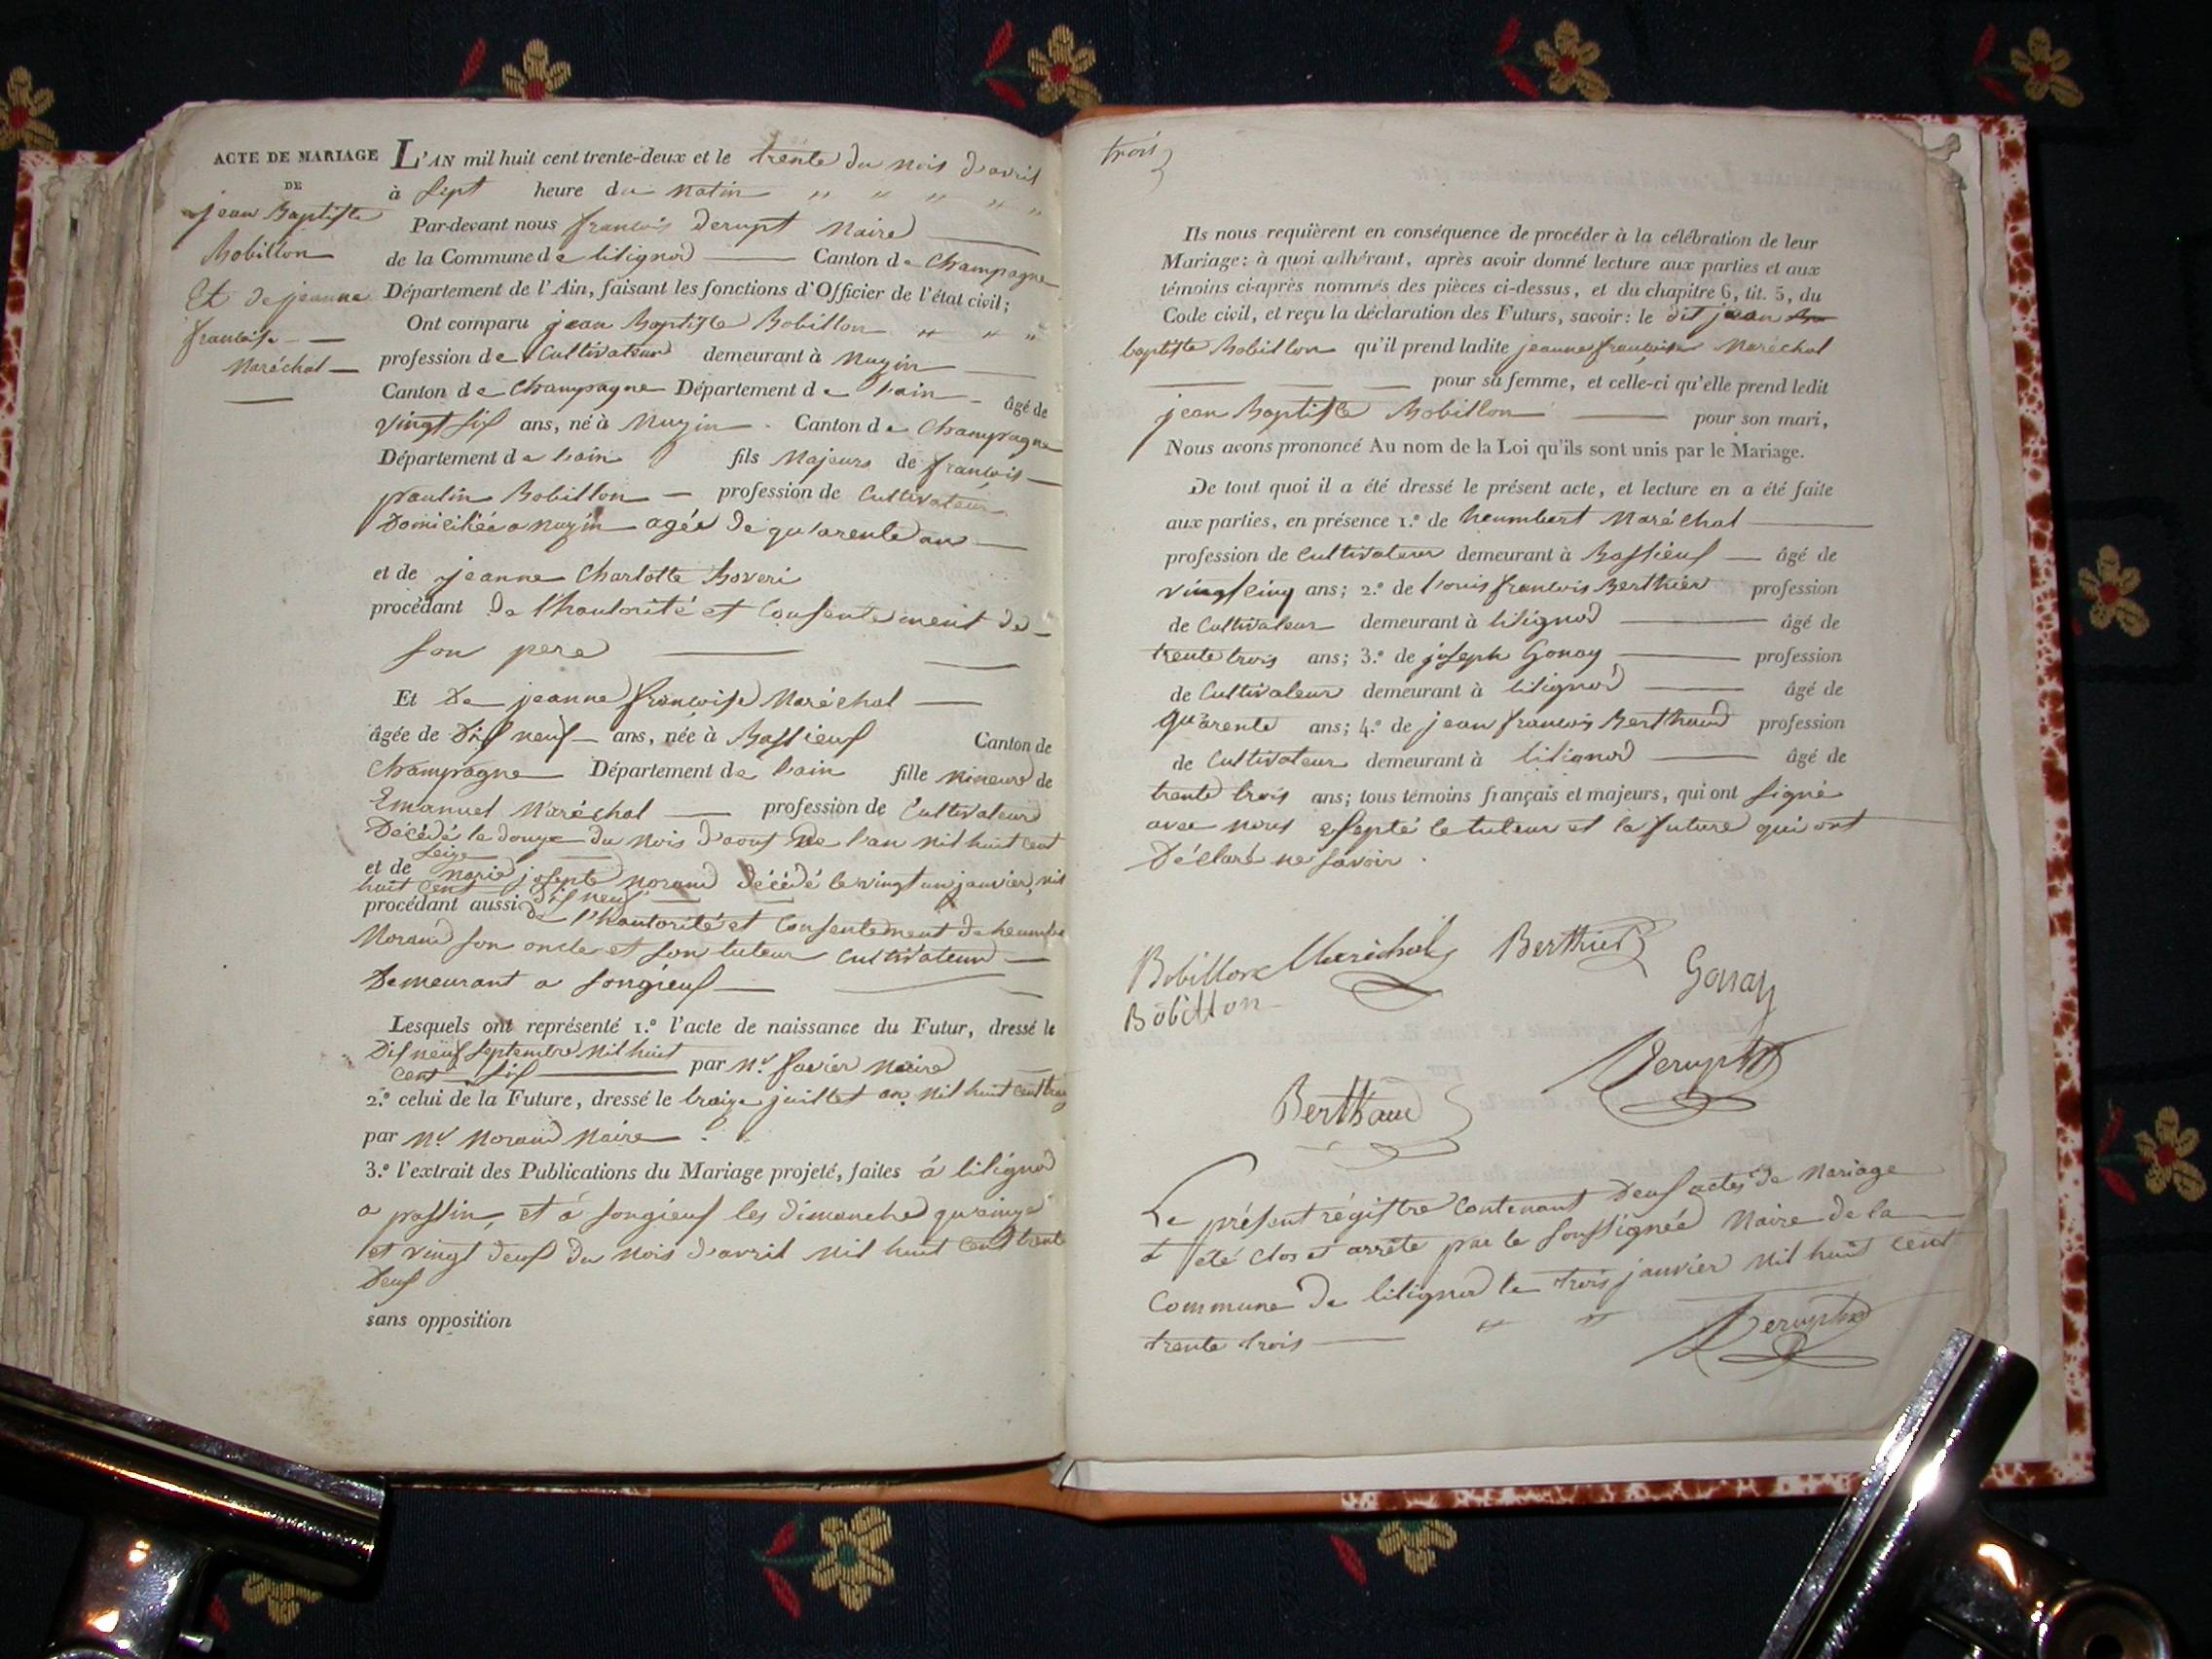 ACTE DE MARIAGE
DE
jean Baptiste
Bobillon
Et de jeanne
francoise
Maréchal
L'AN mil huit cent trente-deux et le trente du mois d'avril
à sept heure du matin " " " " "
Par-devant nous francois Derupt Maire
de la Commune de lilignod Canton de Champagne
Département de l'Ain, faisant les fonctions d'Officier de l'état civil;
Ont comparu jean Baptiste Bobillon " " "
profession de Cultivateur demeurant à Muzin
Canton de Champagne Département de l'ain âgé de
vingt six ans, né à Muzin Canton de Champagne
Département de l'ain fils Majeure de francois
paulin Bobillon profession de Cultivateur
Domiciliée a muzin agée de quarente an
et de jeanne Charlotte Boveri
procédant de l'hautorité et Consentement de
son pere
Et De jeanne francoise Maréchal
âgée de Dix neuf ans, née à Bassieux Canton de
Champagne Département de l'ain fille mineure de
Emanuel Maréchal profession de Cultivateur
Décédé le douze du mois d'aout de l'an mil huit cent
seize
et de marie josepte morand décédé le vingt un janvier mil
huit cent dix neuf
procédant aussi de l'hautorité et Consentement de heumbert
Morand son oncle et son tuteur Cultivateur
Demeurant a songieux
Lesquels ont représenté 1.º l'acte de naissance du Futur, dressé le
Dix neuf septembre mil huit
cent six par Mr. savier maire
2.º celui de la Future, dressé le traize juillet an mil huit cent
par Mr Morand Maire
3.º l'extrait des Publications du Mariage projeté, faites à lilignod
a passin, et à songieux les dimanche quainze
et vingt deux du mois d'avril mil huit cent trente
Deux
sans opposition
trois
Ils nous requièrent en conséquence de procéder à la célébration de leur
Mariage: à quoi adhérant, après avoir donné lecture aux parties et aux
témoins ci-après nommés des pièces ci-dessus, et du chapitre 6, tit. 5, du
Code civil, et reçu la déclaration des Futurs, savoir: le dit jean
baptiste Bobillon qu'il prend ladite jeanne francoise Maréchal
pour sa femme, et celle-ci qu'elle prend ledit
jean Baptiste Bobillon pour son mari,
Nous avons prononcé Au nom de la Loi qu'ils sont unis par le Mariage.
De tout quoi il a été dressé le présent acte, et lecture en a été faite
aux parties, en présence 1.º de heumbert Maréchal
profession de Cultivateur demeurant à Bassieux âgé de
vingt cinq ans; 2.º de l'ouis francois Berthier profession
de Cultivateur demeurant à lilignod âgé de
trente trois ans; 3.º de joseph Gonay profession
de Cultivateur demeurant à lilignod âgé de
quarente ans; 4.º de jean francois Berthaud profession
de Cultivateur demeurant à lilignod âgé de
trente trois ans; tous témoins français et majeurs, qui ont signé
avec nous esepté le tuteur et la future qui ont
Déclaré ne savoir.
Bobillon Marichal Berthier
Gonay
Bobillon
Derupt
Berthaud
Le présent régistre Contenant Deux actes de Mariage
a été clos et arrêté par le soussignée Maire de la
Commune de lilignod le trois janvier mil huit cent
trente trois " "
Derupt